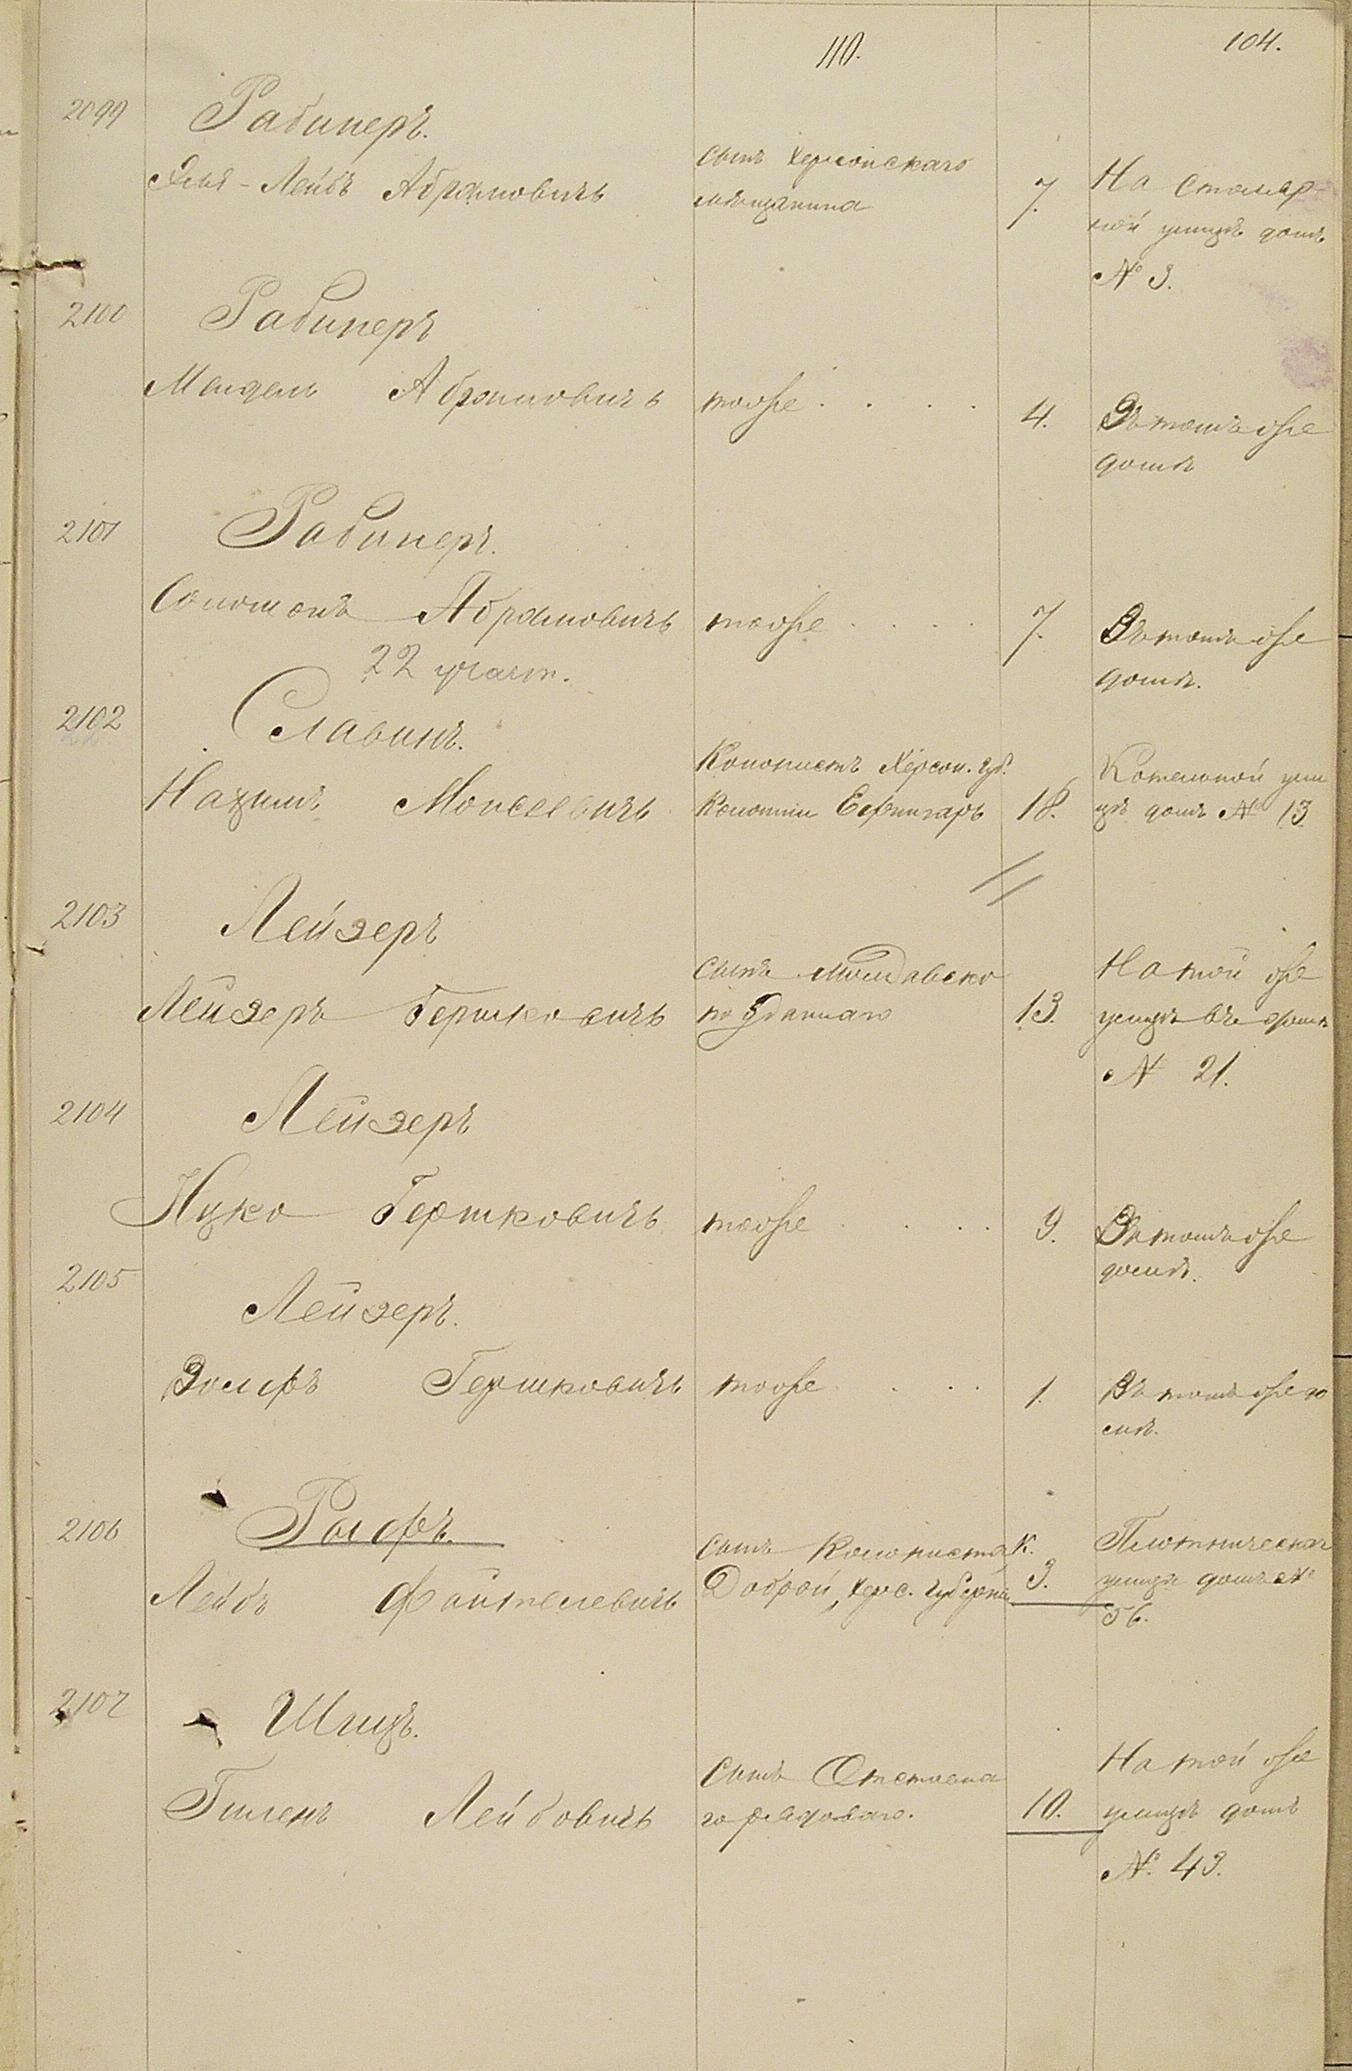 110.
104.
2099
Рабинеръ.
Эля-Лейбъ Абрамовичъ
сынъ Херсонскаго
мѣщанина
7.
На столяр-
ной улицѣ домъ
№ 3.
2100
Рабинеръ
Мендель Абрамовичъ
тоже . . . .
4.
Въ томъ же
домѣ
2101
Рабинеръ.
Соломонъ Абрамовичъ
тоже . . . .
7.
Въ томъ же
домѣ.
22 участ.
2102
Славинъ.
Нахимъ Моисеевичъ
Колонистъ Херсон. губ.
Колоніи Ефингаръ
18.
Котельной ули
цѣ домъ № 13
2103
Лейзеръ
Лейзеръ Гершковичъ
сынъ Молдавско
подданаго
13.
На той же
улицѣ въ домѣ
№ 21.
2104
Лейзеръ
Ицко Гершковичъ
тоже . . . .
9.
Въ томъ же
домѣ.
2105
Лейзеръ.
Волфъ Гершковичъ
тоже . . .
1.
Въ томъ же до
мѣ.
2106
Рольфъ.
Лейбъ Файтелевичъ
сынъ Колониста К.
Доброй, Херс. Губерніи
3.
Плотническая
улица домъ №
56.
2107
Шлицъ.
Гилель Лейбовичъ
сынъ Отставна
го рядоваго.
10.
На той же
улицѣ домъ
№ 43.